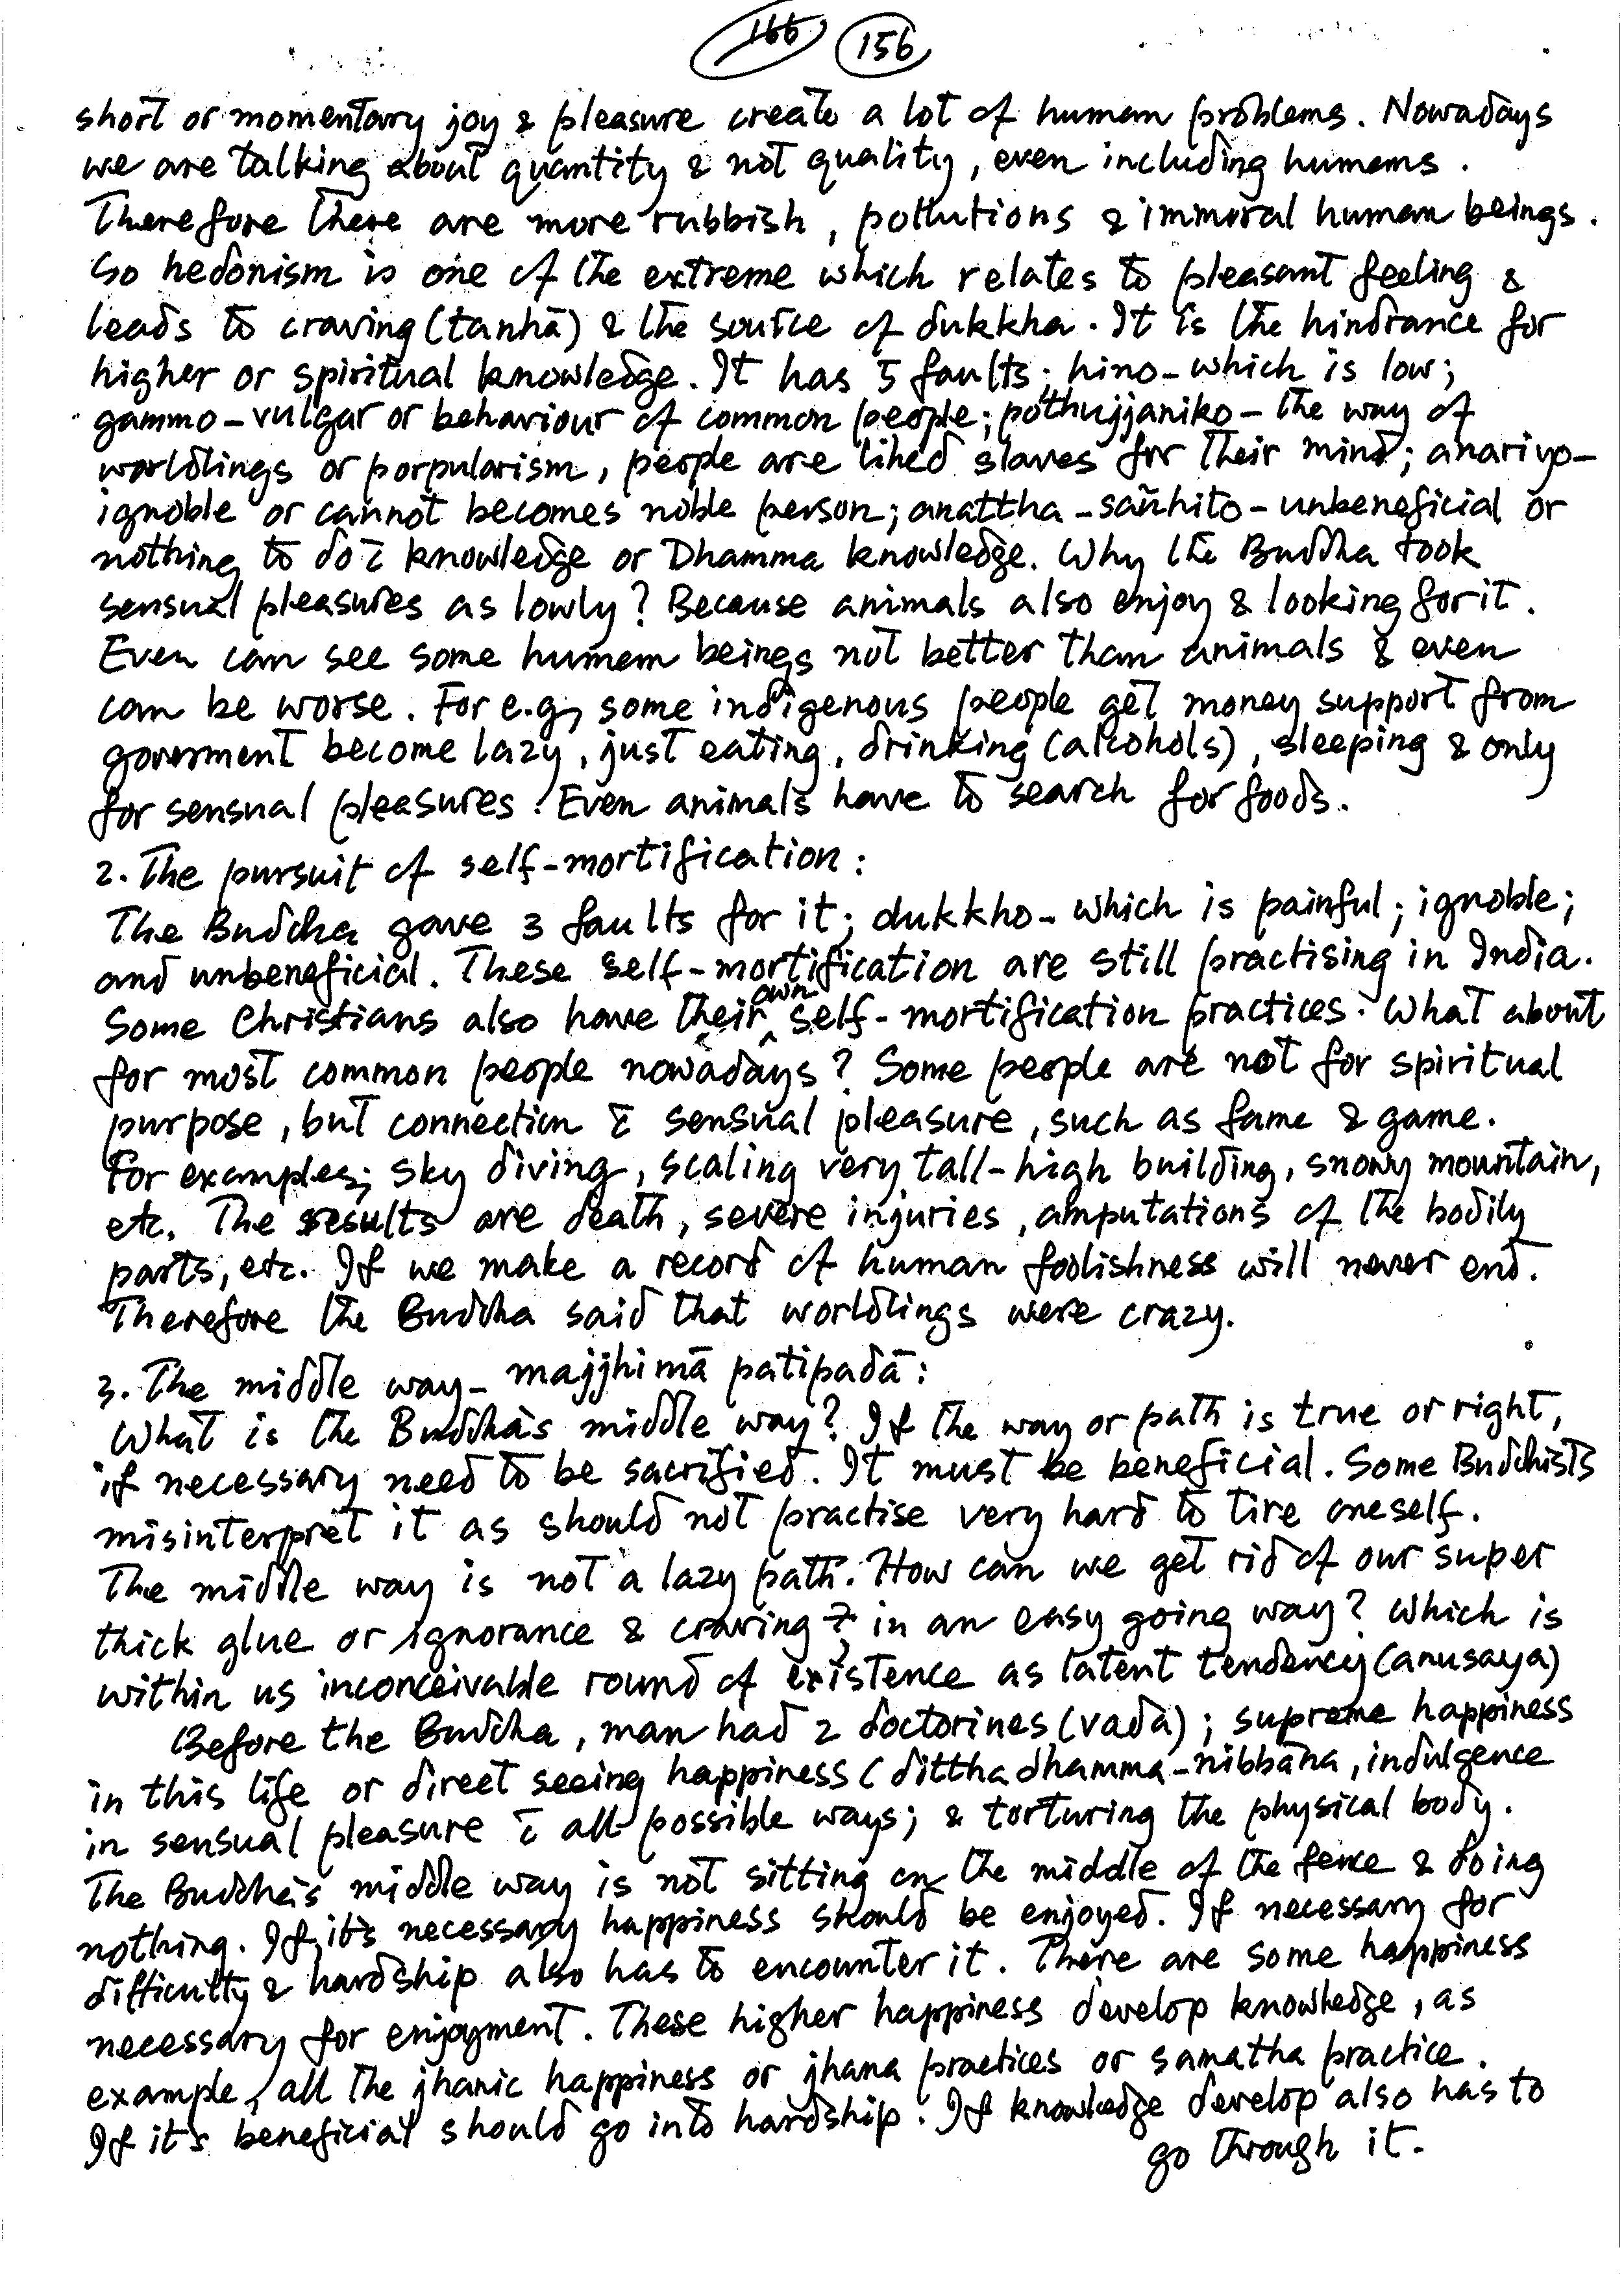 166 156
short or momentary joy & pleasure create a lot of human problems. Nowadays
we are talking about quantity & not quality, even including humans.
Therefore there are more rubbish, pollutions & immoral human beings.
So hedonism is one of the extreme which relates to pleasant feeling &
leads to craving (tanhā) & the source of dukkha. It is the hindrance for
higher or spiritual knowledge. It has 5 faults; hino-which is low;
gammo-vulgar or behaviour of common people; pothujjaniko - the way of
worldlings or porpularism, people are liked slaves for their mind; anariyo-
ignoble or cannot becomes noble person; anattha-sañhito-unbeneficial or
nothing to do c̄ knowledge or Dhamma knowledge. Why the Buddha took
sensual pleasures as lowly? Because animals also enjoy & looking for it.
Even can see some human beings not better than animals & even
can be worse. For e.g, some indigenous people get money support from
goverment become lazy, just eating, drinking (alcohols), sleeping & only
for sensual pleasures. Even animals have to search for foods.
2. The pursuit of self-mortification:
The Buddha gave 3 faults for it; dukkho- which is painful; ignoble;
and unbeneficial. These self-mortification are still practising in India.
Some Christians also have their own self-mortification practices. What about
for most common people nowadays? Some people are not for spiritual
purpose, but connection c̄ sensual pleasure, such as fame & game.
For examples; sky diving, scaling very tall-high building, snowy mountain,
etc. The results are death, severe injuries, amputations of the bodily
parts, etc. If we make a record of human foolishness will never end.
Therefore the Buddha said that worldlings were crazy.
3. The middle way- majjhimā patipadā:
What is the Buddha's middle way? If the way or path is true or right,
if necessary need to be sacrified. It must be beneficial. Some Buddhists
misinterpret it as should not practise very hard to tire oneself.
The middle way is not a lazy path. How can we get rid of our super
thick glue or ignorance & craving in an easy going way? Which is
within us inconceivable round of existence as latent tendency (anusaya)
Before the Buddha, man had 2 doctorines (vada); supreme happiness
in this life or direct seeing happiness (dittha dhamma-nibbāna, indulgence
in sensual pleasure c̄ all possible ways; & torturing the physical body.
The Buddha's middle way is not sitting on the middle of the fence & doing
nothing. If it's necessary happiness should be enjoyed. If necessary for
difficulty & hardship also has to encounter it. There are some happiness
necessary for enjoyment. These higher happiness develop knowledge, as
example, all the jhanic happiness or jhana practices or samatha practice.
If it's beneficial should go into hardship. If knowledge develop also has to
go through it.